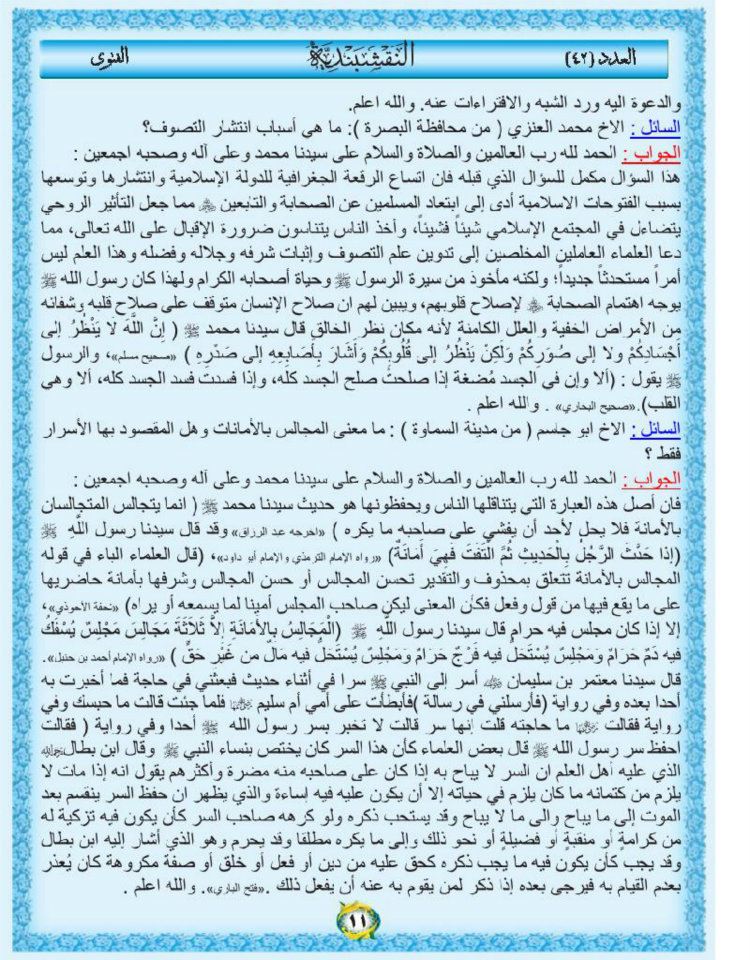 العدد (٤٢) النقشبندية الفتوى
والدعوة اليه ورد الشبه والافتراءات عنه. والله اعلم.
السائل : الاخ محمد العنزي ( من محافظة البصرة ): ما هي أسباب انتشار التصوف؟
الجواب : الحمد لله رب العالمين والصلاة والسلام على سيدنا محمد وعلى آله وصحبه اجمعين :
هذا السؤال مكمل للسؤال الذي قبله فان اتساع الرقعة الجغرافية للدولة الإسلامية وانتشارها وتوسعها
بسبب الفتوحات الاسلامية أدى إلى ابتعاد المسلمين عن الصحابة والتابعين مما جعل التأثير الروحي
يتضاءل في المجتمع الإسلامي شيئاً فشيئاً، وأخذ الناس يتناسون ضرورة الإقبال على الله تعالى، مما
دعا العلماء العاملين المخلصين إلى تدوين علم التصوف وإثبات شرفه وجلاله وفضله وهذا العلم ليس
أمراً مستحدثاً جديداً؛ ولكنه مأخوذ من سيرة الرسول ﷺ وحياة أصحابه الكرام ولهذا كان رسول الله ﷺ
يوجه اهتمام الصحابة لإصلاح قلوبهم، ويبين لهم ان صلاح الإنسان متوقف على صلاح قلبه وشفائه
من الأمراض الخفية والعلل الكامنة لأنه مكان نظر الخالق قال سيدنا محمد ﷺ ( إِنَّ اللَّهَ لَا يَنْظُرُ إلى
أَجْسَادِكُمْ ولا إلى صُوَرِكُمْ وَلَكِنْ يَنْظُرُ إلى قُلُوبِكُمْ وَأَشَارَ بِأَصَابِعِهِ إلى صَدْرِهِ ) «صحيح مسلم»، والرسول
ﷺ يقول : (ألا وإن في الجسد مُضغة إذا صلحت صلح الجسد كله، وإذا فسدت فسد الجسد كله، ألا وهي
القلب).«صحيح البخاري» . والله اعلم .
السائل : الاخ ابو جاسم ( من مدينة السماوة ) : ما معنى المجالس بالأمانات وهل المقصود بها الأسرار
فقط ؟
الجواب : الحمد لله رب العالمين والصلاة والسلام على سيدنا محمد وعلى آله وصحبه اجمعين :
فان أصل هذه العبارة التي يتناقلها الناس ويحفظونها هو حديث سيدنا محمد ﷺ ( انما يتجالس المتجالسان
بالأمانة فلا يحل لأحد أن يفشي على صاحبه ما يكره ) «اخرجه عبد الرزاق» وقد قال سيدنا رسول الله ﷺ
(إذا حَدَّثَ الرَّجُلُ بِالْحَدِيثِ ثُمَّ الْتَفَتَ فَهِيَ أَمَانَةٌ) «رواه الإمام الترمذي والإمام أبو داود»، (قال العلماء الباء في قوله
المجالس بالأمانة تتعلق بمحذوف والتقدير تحسن المجالس أو حسن المجالس وشرفها بأمانة حاضريها
على ما يقع فيها من قول وفعل فكأن المعنى ليكن صاحب المجلس أمينا لما يسمعه أو يراه) «تحفة الأحوذي»،
إلا إذا كان مجلس فيه حرام قال سيدنا رسول الله ﷺ (الْمَجَالِسُ بِالأَمَانَةِ إِلاَّ ثَلاَثَةَ مَجَالِسَ مَجْلِسٌ يُسْفَكُ
فيه دَمٌ حَرَامٌ وَمَجْلِسٌ يُسْتَحَلُّ فيه فَرْجٌ حَرَامٌ وَمَجْلِسٌ يُسْتَحَلُّ فيه مَالٌ من غَيْرِ حَقٍّ ) «رواه الإمام أحمد بن حنبل».
قال سيدنا معتمر بن سليمان أسر إلى النبي ﷺ سرا في أثناء حديث فبعثني في حاجة فما أخبرت به
أحدا بعده وفي رواية (فأرسلني في رسالة )فأبطأت على أمي أم سليم فلما جئت قالت ما حبسك وفي
رواية فقالت ما حاجته قلت إنها سر قالت لا تخبر بسر رسول الله ﷺ أحدا وفي رواية ( فقالت
احفظ سر رسول الله ﷺ قال بعض العلماء كأن هذا السر كان يختص بنساء النبي ﷺ وقال ابن بطال
الذي عليه أهل العلم ان السر لا يباح به إذا كان على صاحبه منه مضرة وأكثرهم يقول انه إذا مات لا
يلزم من كتمانه ما كان يلزم في حياته إلا أن يكون عليه فيه إساءة والذي يظهر ان حفظ السر ينقسم بعد
الموت إلى ما يباح والى ما لا يباح وقد يستحب ذكره ولو كرهه صاحب السر كأن يكون فيه تزكية له
من كرامةٍ أو منقبةٍ أو فضيلةٍ أو نحو ذلك وإلى ما يكره مطلقا وقد يحرم وهو الذي أشار إليه ابن بطال
وقد يجب كأن يكون فيه ما يجب ذكره كحق عليه من دين أو فعل أو خلق أو صفة مكروهة كان يُعذر
بعدم القيام به فيرجى بعده إذا ذكر لمن يقوم به عنه أن يفعل ذلك .«فتح الباري». والله اعلم .
١١